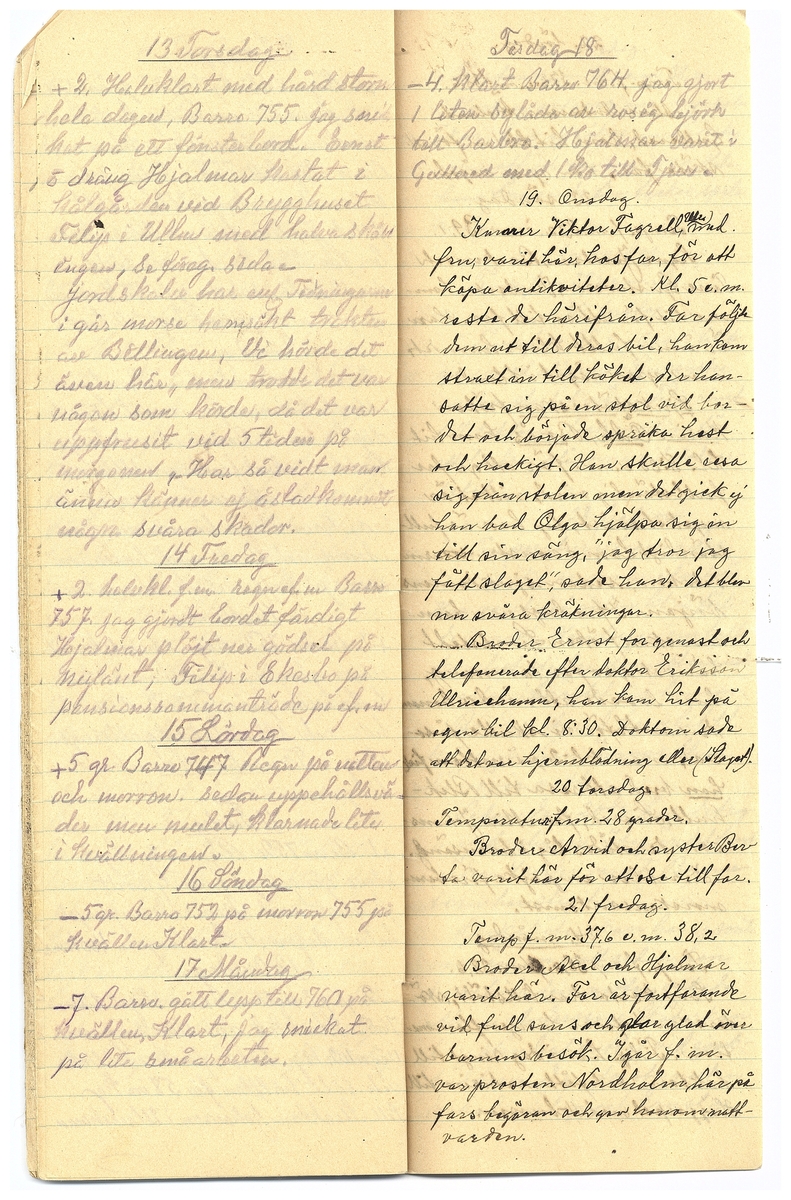 13 Torsdag
+2. Halvklart med hård storm
hela dagen, Barro 755. jag snic
kat på ett fönsterbord. Ernst
o dräng Hjalmar kastat i
kålgården vid Brygghuset
Filip i Ullm med halva skån
ingen, se föreg. sida.
Jordskalv har enl. Tidningarna
i går morse hemsökt trakten
av Billingen, Vi hörde det
även här, men trodde det var
någon som körde, då det var
uppfruset vid 5 tiden på
morgonen, Har så vidt man
ännu känner ej åstadkommit
några svåra skador.
14 Fredag
+2. halvkl. f.m. regn ef.m Barro
757. jag gjordt bordet färdigt
Hjalmar plöjt ner gödsel på
nylänt; Filip i Ekesbo på
pensionssammanträde på ef.m
15 Lördag
+5 gr. Barro 747 Regn på natten
och morron. sedan uppehållsvä
der men mulet, klarnade lite
i kvällningen.
16 Söndag
–5 gr. Barro 752 på morron 755 på
kvällen Klart.
17 Måndag
–7. Barro. gått upp till 760 på
kvällen, Klart, jag snickat
på lite småarbeten.
Tisdag 18
–4. Klart Barro 764. jag gjort
1 liten bylåda av björk
till Barbro. Hjalmar varit i
Gullered med 1 ko till Tjur.
19. Onsdag.
Viktor Fagrell, med
fru, varit här, hos far, för att
köpa antikviteter. Kl. 5 e.m.
reste de härifrån. Far följde
dem ut till deras bil, han kom
straxt in till köket der han
satte sig på en stol vid bor-
det och började språka hest
och hackigt. Han skulle resa
sig från stolen men det gick ej
han bad Olga hjälpa sig in
till sin säng, "jag tror jag
fått slaget", sade han, det blev
nu svåra kräkningar.
Broder Ernst for genast och
telefonerade efter doktor Eriksson
Ulricehamn, han kom hit på
egen bil kl. 8:30. Doktorn sade
att det var hjernblödning eller (Slaget).
20 torsdag.
Temperatur f.m. 28 grader.
Broder Arvid och syster Ber
ta varit här för att se till far.
21 fredag.
Temp f.m. 37,6 e.m. 38,2
Broder Axel och Hjalmar
varit här. Far är fortfarande
vid full sans och glad över
barnens besök. Igår f.m.
var prosten Nordholm här på
fars begäran och gav honom natt-
varden.